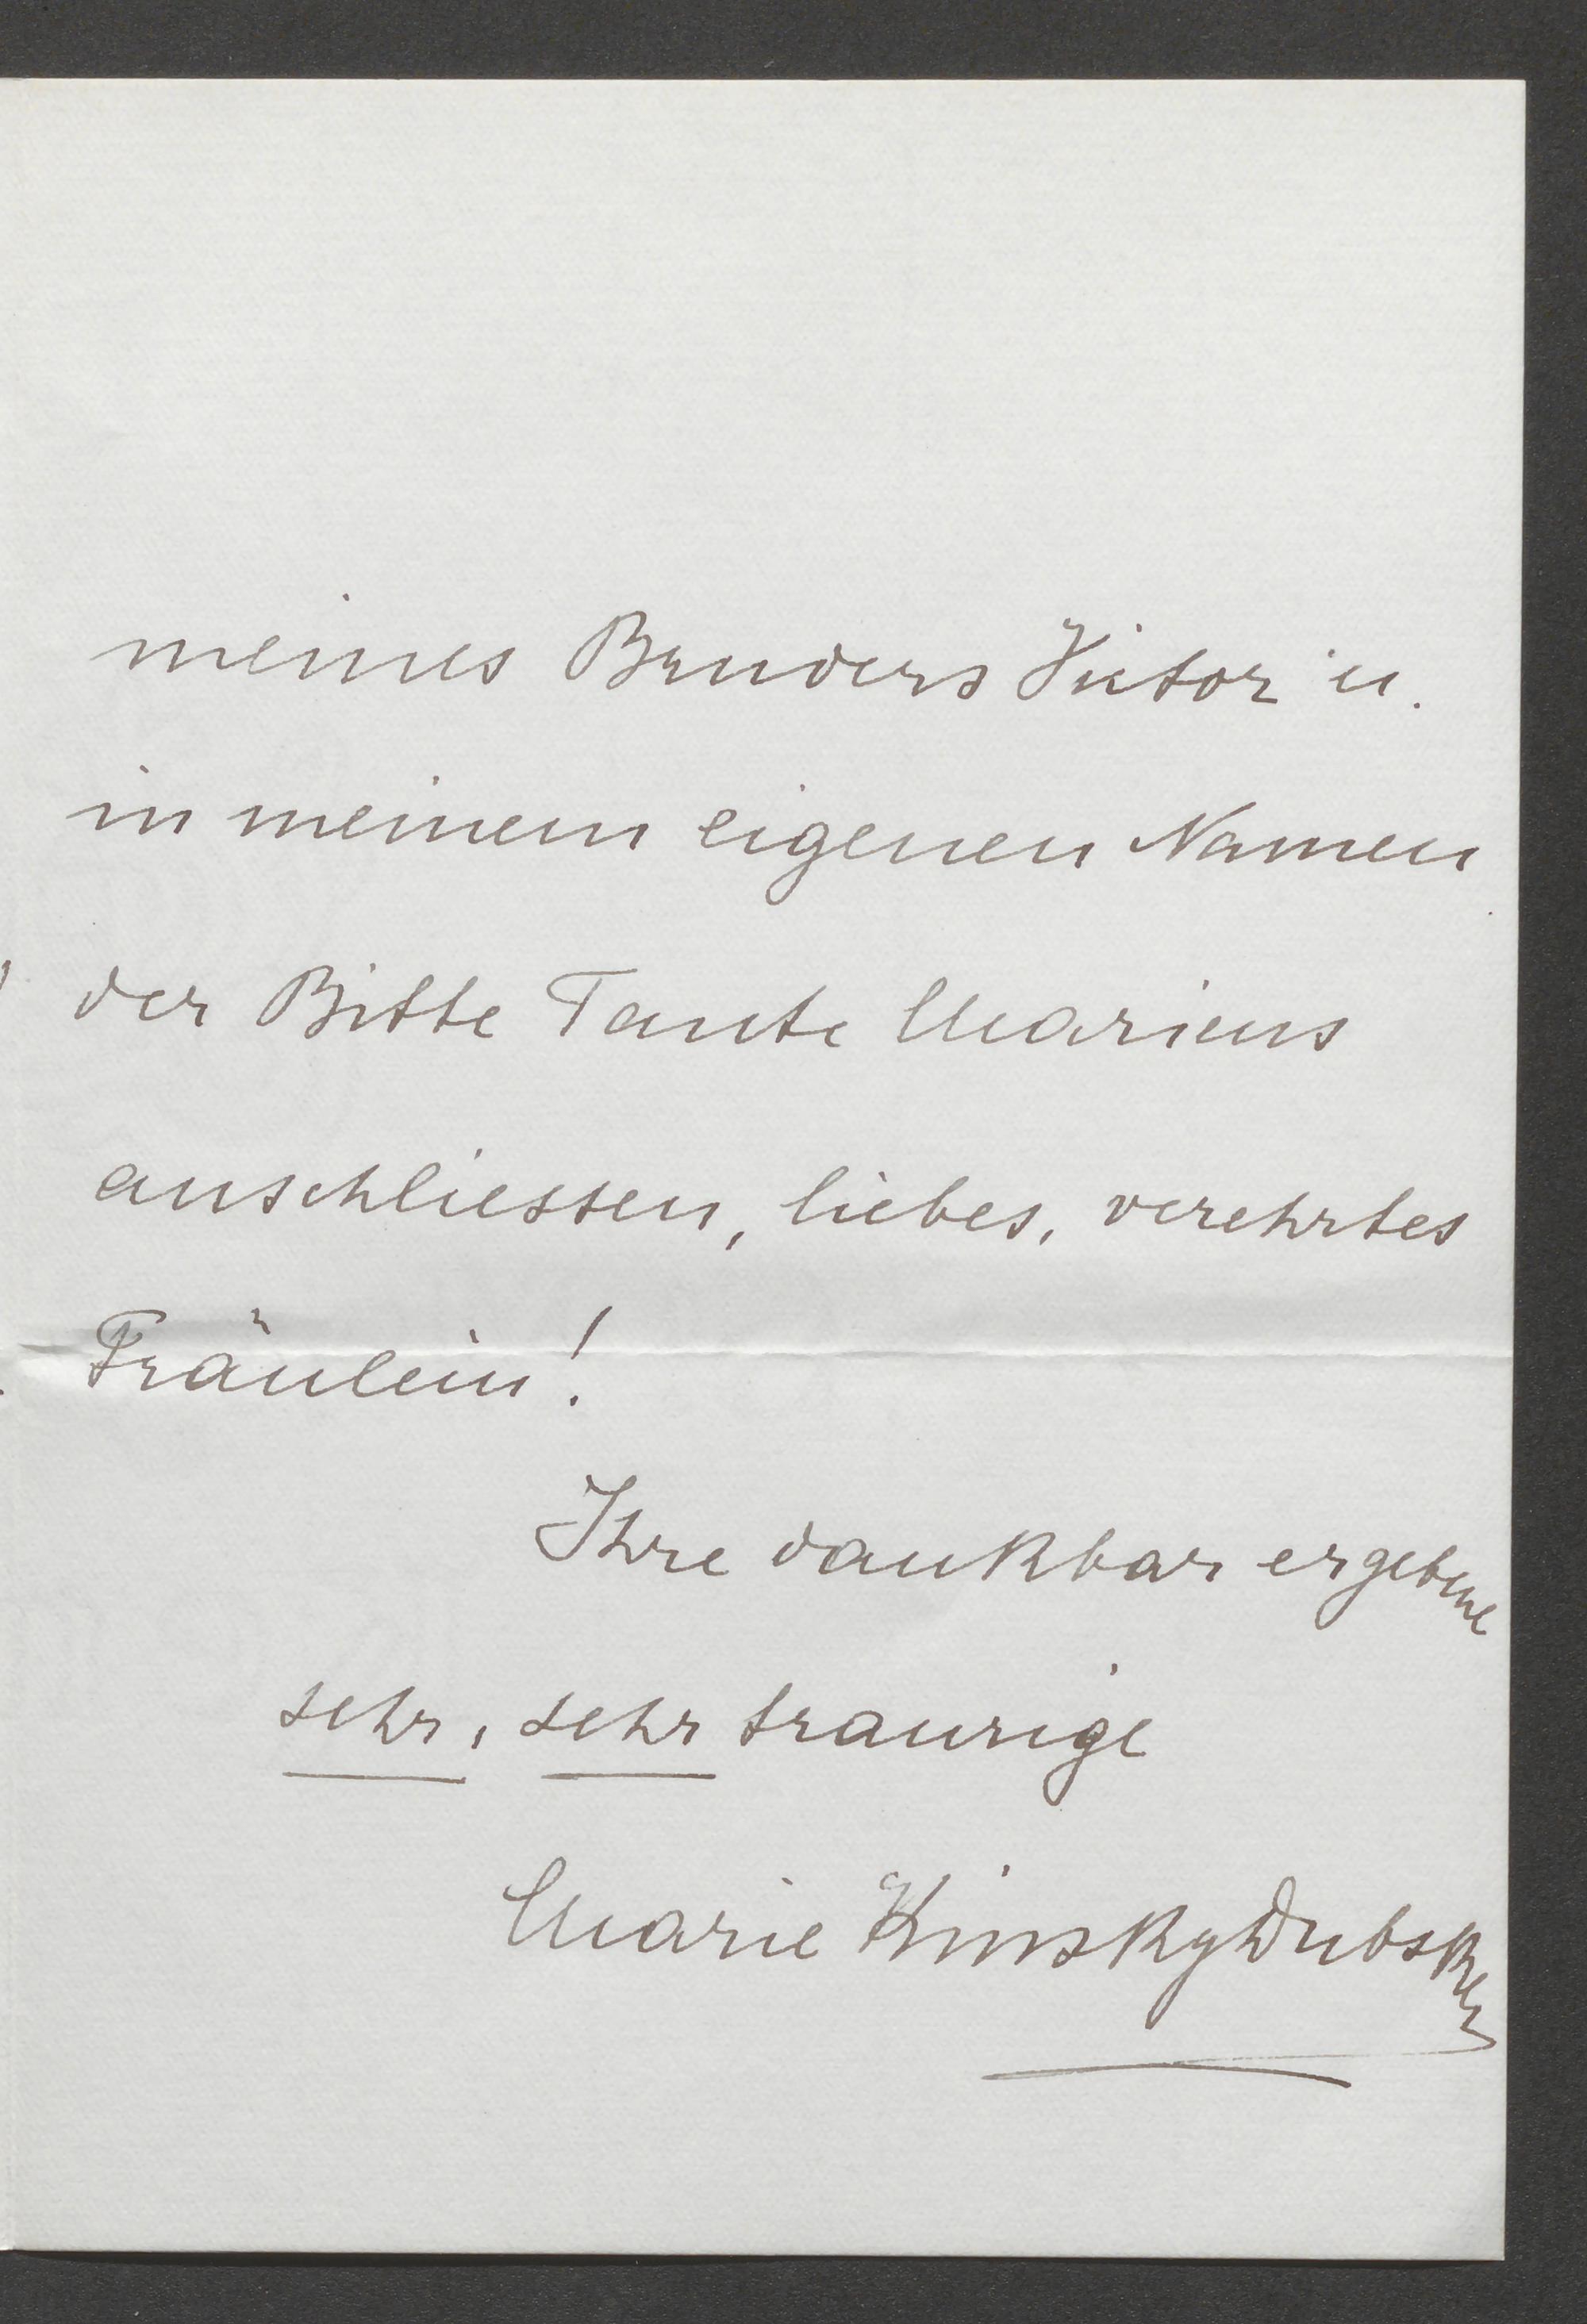 meines Bruders Viktor u.
in meinem eigenen Namen
der Bitte Tante Mariens
anschliessen, liebes, verehrtes
Fräulein!
Ihre dankbar ergebene
sehr, sehr traurige
Marie Kinsky Dubsky